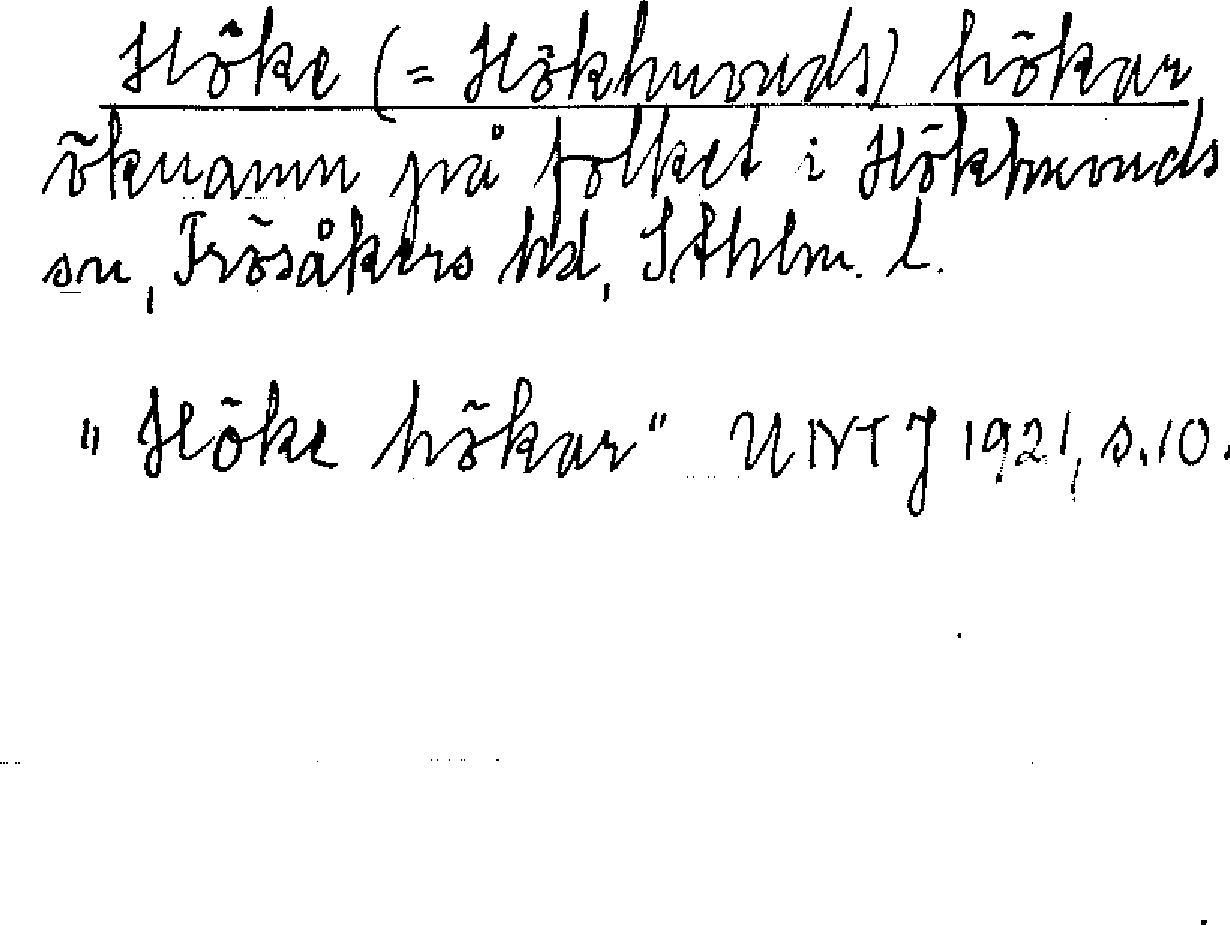 Höke (= Hökhuvuds) hökar
öknamn på folket i Hökhuvuds
sn, Frösåkers hd, Sthlm. L.
"Höke hökar" UNTJ 1921, s. 10.